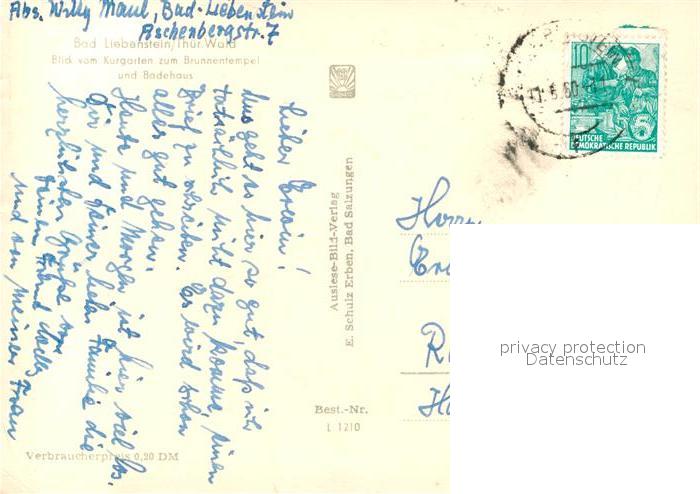 Abs. Willy Maul, Bad-Liebenstein
Aschenbergstr. 7
Bad Liebenstein/Thür. Wald
Blick vom Kurgarten zum Brunnentempel
und Badehaus
Lieber Erwin!
Uns geht es hier so gut, daß ich
tatsächlich nicht dazu komme, einen
Brief zu schreiben. Es wird schon
alles gut gehen.
Heute und Morgen ist hier viel los.
Dir und Deiner lieben Familie die
herzlichsten Grüße von
Deinem Freund
und von meiner Frau
Auslese-Bild-Verlag
E. Schulz Erben, Bad Salzungen
Best.-Nr.
L 1210
Verbraucherpreis 0,20 DM
10
5
DEUTSCHE
DEMOKRATISCHE REPUBLIK
Herrn
privacy protection
Datenschutz